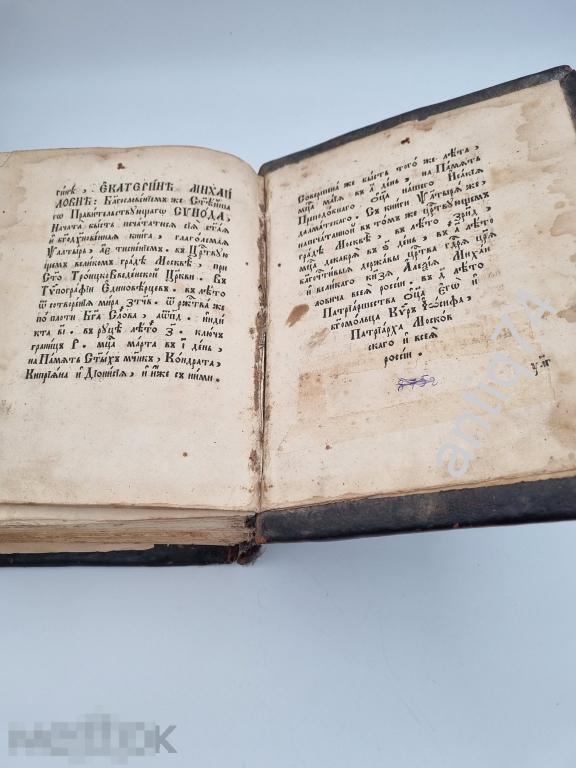 гинѣ, ЕКАТЕРИНѢ МИХАИ
ЛОВНѢ: Благословенїемъ же Ст҃ѣиша
гѡ Правительствующагѡ СѴНОДА,
Начата бысть печататися сїѧ ст҃аѧ
и бг҃одхновеннаѧ книга, глаголемаѧ
Ѱалтырь, тисненїемъ, въ Цр҃ству
ющемъ великомъ градѣ Москвѣ, при
Ст҃о Троицко Введенской Цр҃кви. Въ
Тѵпографїи Единовѣрцевъ. въ лѣто
ѿ сотворенїѧ мира ѿ рж҃ства же
по плоти Бг҃а Слова, инди
кта въ руцѣ лѣто ключъ
границ Р. мц҃а марта въ день,
на Память Ст҃ыхъ мч҃нкъ, Кондрата,
Кипрїѧна и Дїонисїѧ, и иже съ ними.
Совершена же бысть тогѡ же лѣта,
мц҃а маїѧ въ л҃ день, на Память
Преподобнаго Оц҃а нашего Исакїѧ
далматскаго. Съ книги Ѱалтыри же,
напечатанной въ томъ же царствующемъ
градѣ Москвѣ, въ лѣто
мц҃а декабрѧ въ день, въ лѣто
благочестивыѧ державы царства гдр҃ѧ царѧ
и великаго кн҃зѧ Алеѯїѧ Михаи
ловича всеѧ россїи, въ лѣто
Патрїаршества Оц҃а Егѡ и
богомольца Кѵръ Іѡсифа,
Патрїарха Москов
скаго и всеѧ
россїи.
anlio74
мешок